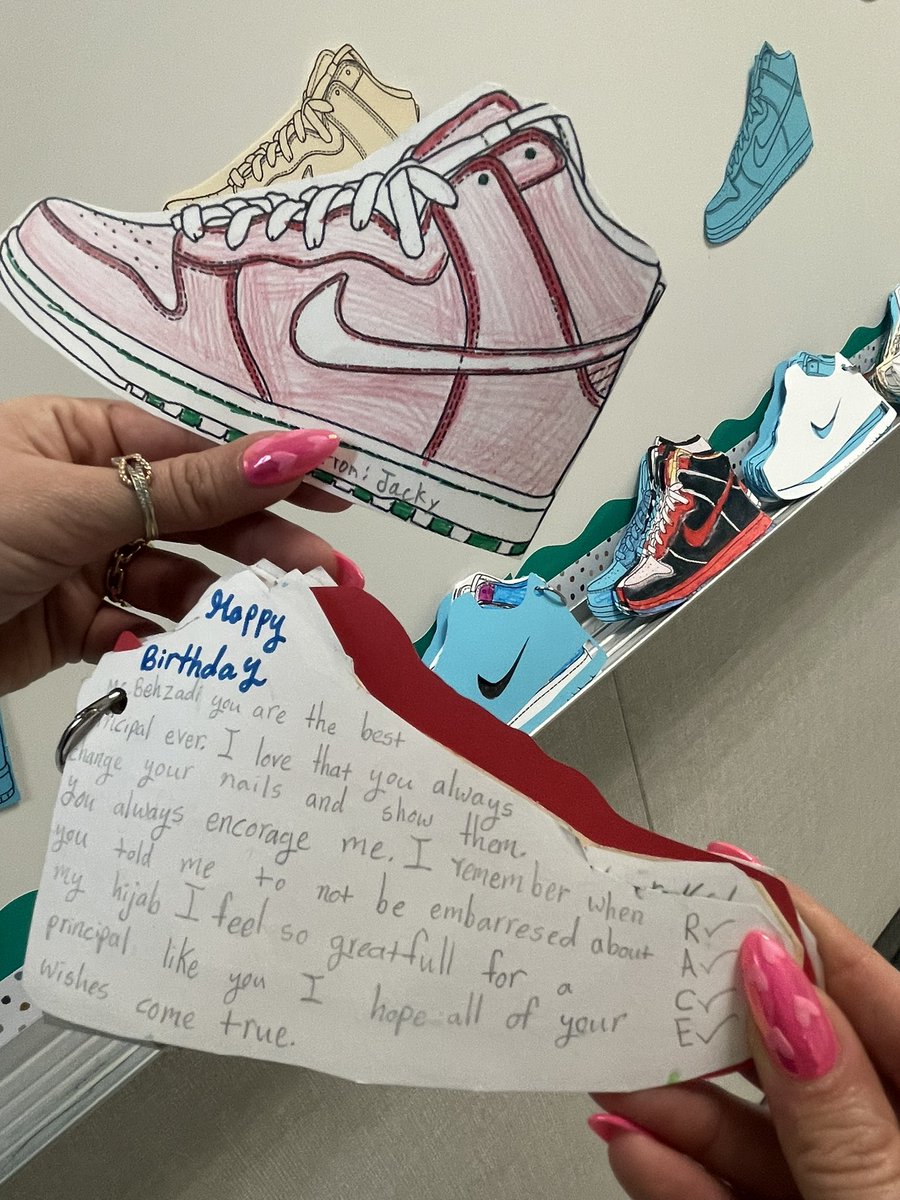 Toni Jacky
Happy
Birthday
Ms. Behzadi you are the best
principal ever. I love that you always
change your nails and show them.
You always encorage me. I remember when
you told me to not be embarresed about
my hijab I feel so greatfull for a
principal like you I hope all of your
wishes come true.
R✓
A✓
C✓
E✓